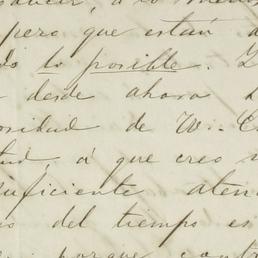 á lo menos
pero que están a
do lo posible.
desde ahora
osidad de W.
tud, á que creo
suficiente aten
os del tiempo es
porque contr